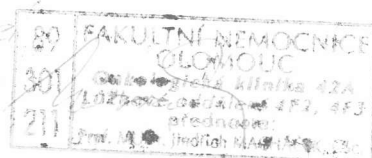 89
301
211
FAKULTNÍ NEMOCNICE
OLOMOUC
Onkologická klinika 42A
Lůžkové oddělení 4F2, 4F3
přednosta:
Jindřich